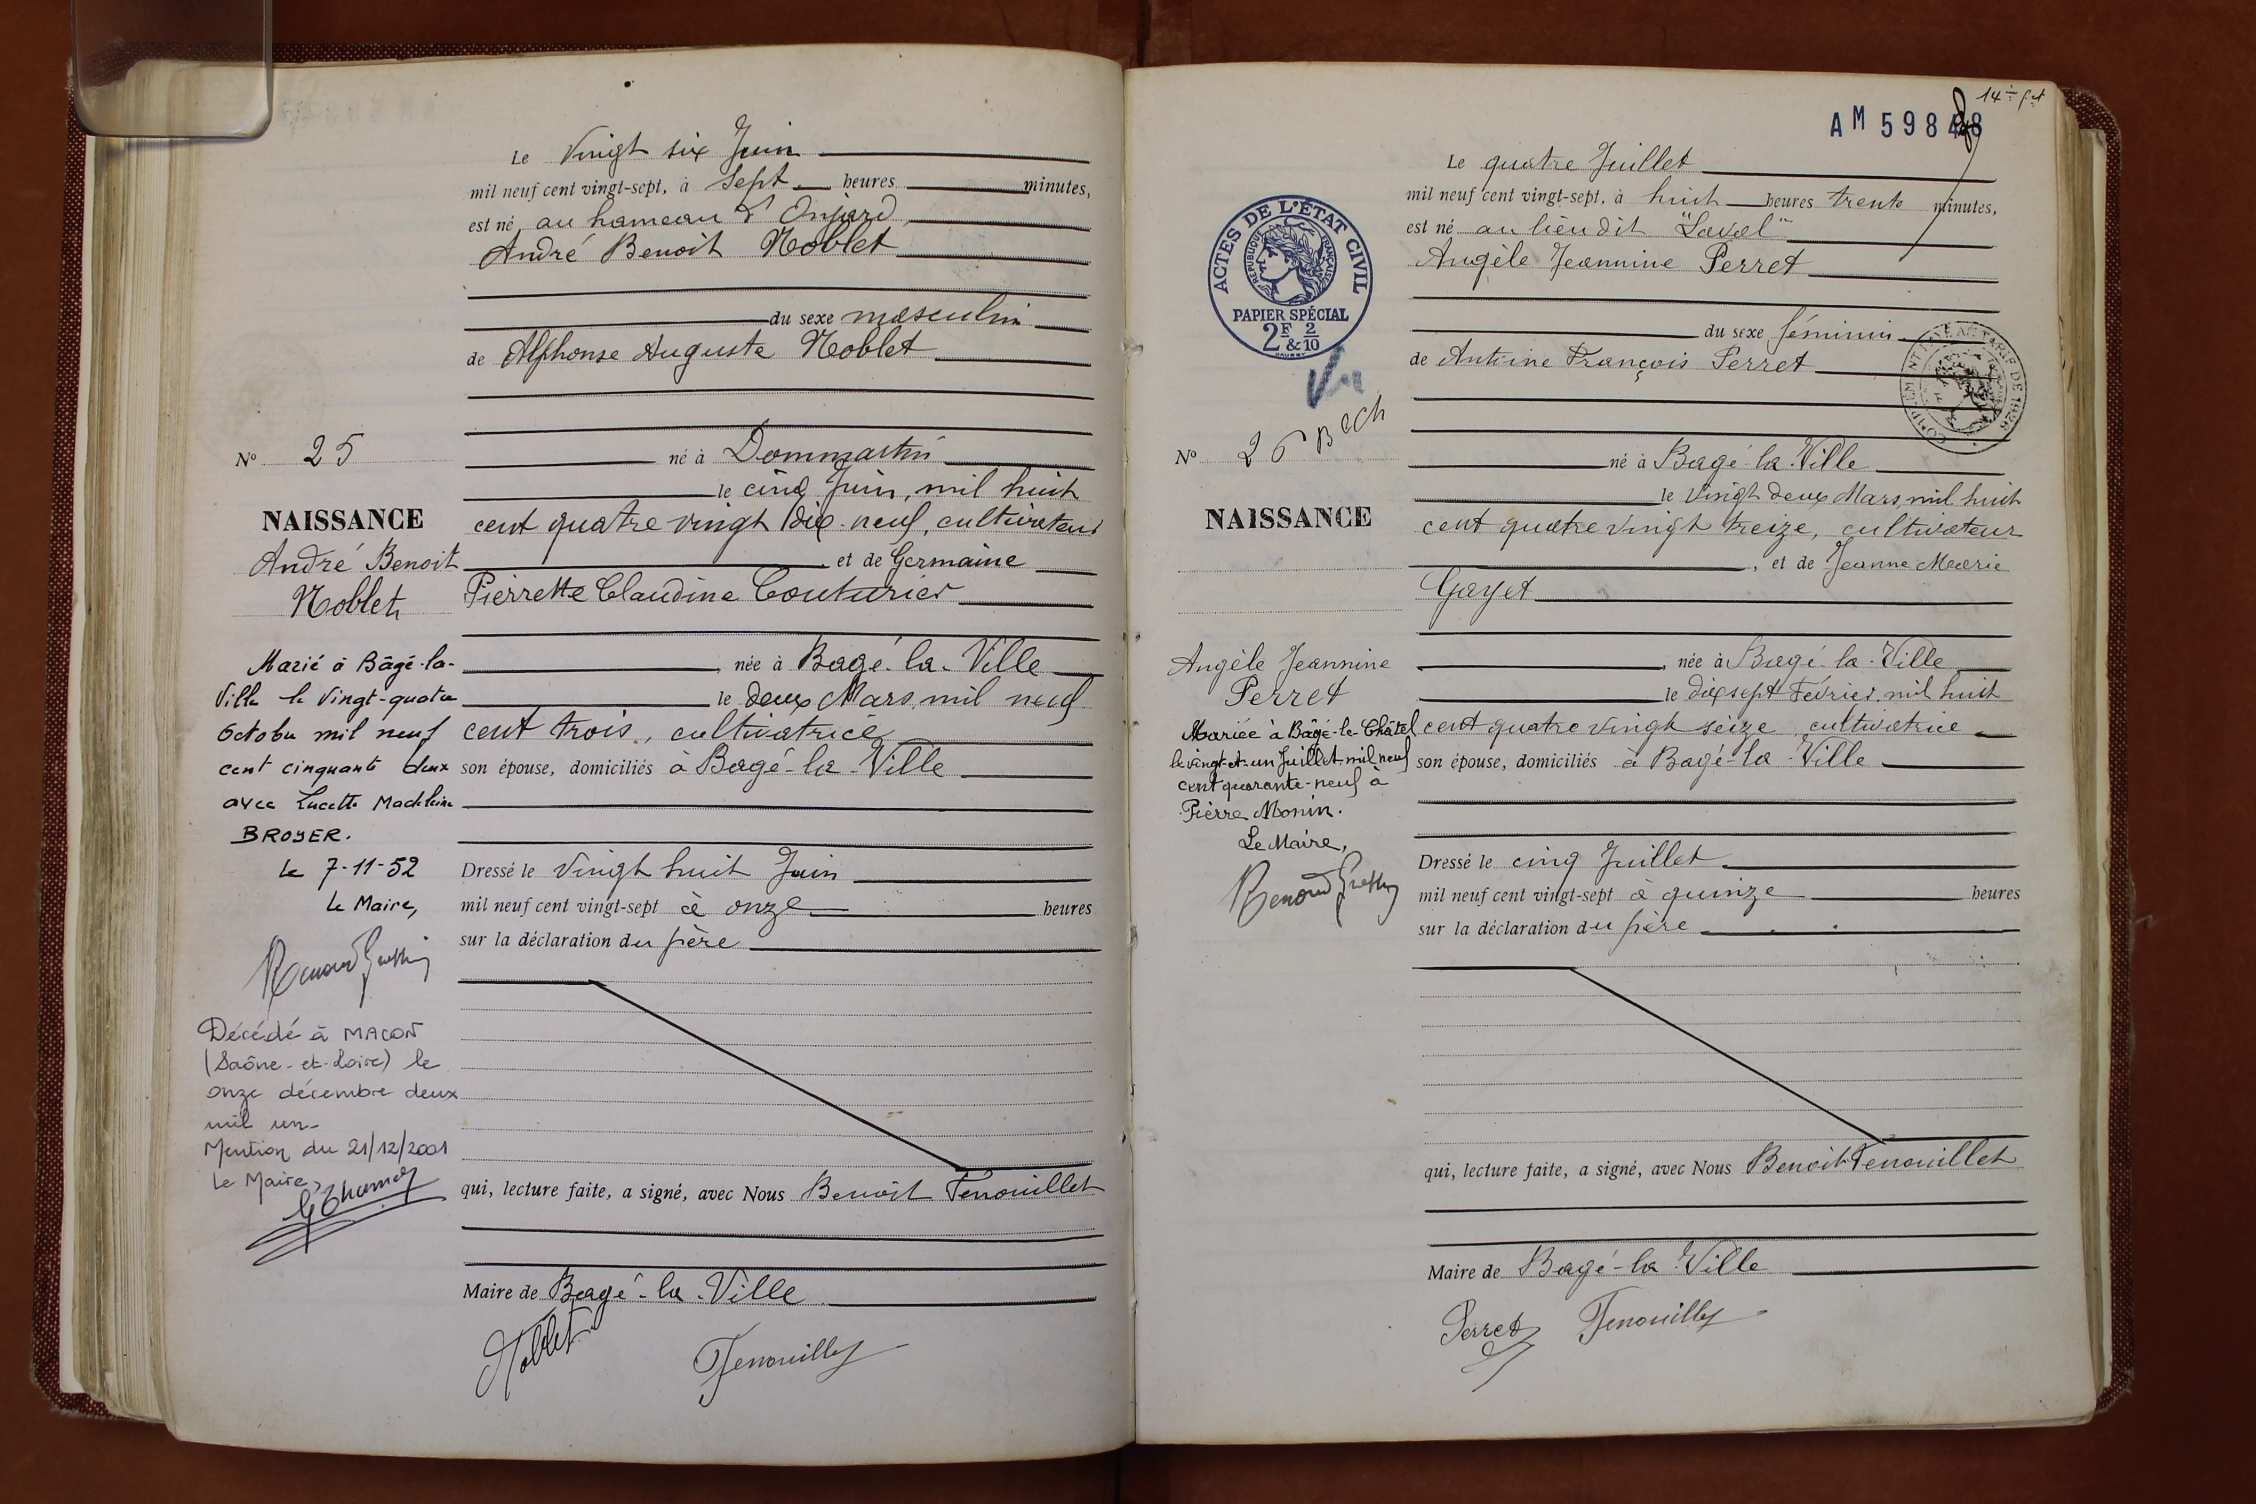 Le vingt six Juin
mil neuf cent vingt-sept, à sept heures minutes,
est né au hameau d'Onjard,
André Benoit Noblet
du sexe masculin
de Alphonse Auguste Noblet
N° 25
né à Dommartin
le cinq Juin, mil huit
NAISSANCE
cent quatre vingt dix-neuf, cultivateur
André Benoit
Noblet
, et de Germaine
Pierrette Claudine Couturier
née à Bagé-la-Ville
le deux Mars, mil neuf
cent trois, cultivatrice
son épouse, domiciliés à Bagé-la-Ville
Marié à Bâgé-la-
Ville le vingt-quatre
Octobre mil neuf
cent cinquante deux
avec Lucette Madeleine
BROYER.
Le 7-11-52
Le Maire,
Décédé à MACON
(Saône-et-Loire) le
onze décembre deux
mil un-
Mention du 21/12/2001
Le Maire,
Dressé le vingt huit Juin
mil neuf cent vingt-sept à onze heures
sur la déclaration du père
qui, lecture faite, a signé, avec Nous Benoit Fenouillet
Maire de Bagé-la-Ville
Noblet
Fenouillet
14è f et
AM 59848
Le quatre Juillet
mil neuf cent vingt-sept, à huit heures trente minutes,
est né au lieu dit "Laval"
Angèle Jeannine Perret
du sexe féminin
de Antoine François Perret
ACTES DE L'ÉTAT CIVIL
RÉPUBLIQUE FRANÇAISE
PAPIER SPÉCIAL
2F & 2/10
Vu
N° 26 Bach
né à Bagé-la-Ville
le vingt deux Mars, mil huit
NAISSANCE
cent quatre vingt treize, cultivateur
, et de Jeanne Marie
Gayet
née à Bagé-la-Ville
le dix sept Février, mil huit
cent quatre vingt seize, cultivatrice
son épouse, domiciliés à Bagé-la-Ville
Angèle Jeannine
Perret
Mariée à Bâgé-le-Châtel
le vingt-et-un Juillet mil neuf
cent quarante-neuf à
Pierre Monin.
Le Maire,
Dressé le cinq Juillet
mil neuf cent vingt-sept à quinze heures
sur la déclaration du père
qui, lecture faite, a signé, avec Nous Benoit Fenouillet
Maire de Bagé-la-Ville
Perret
Fenouillet